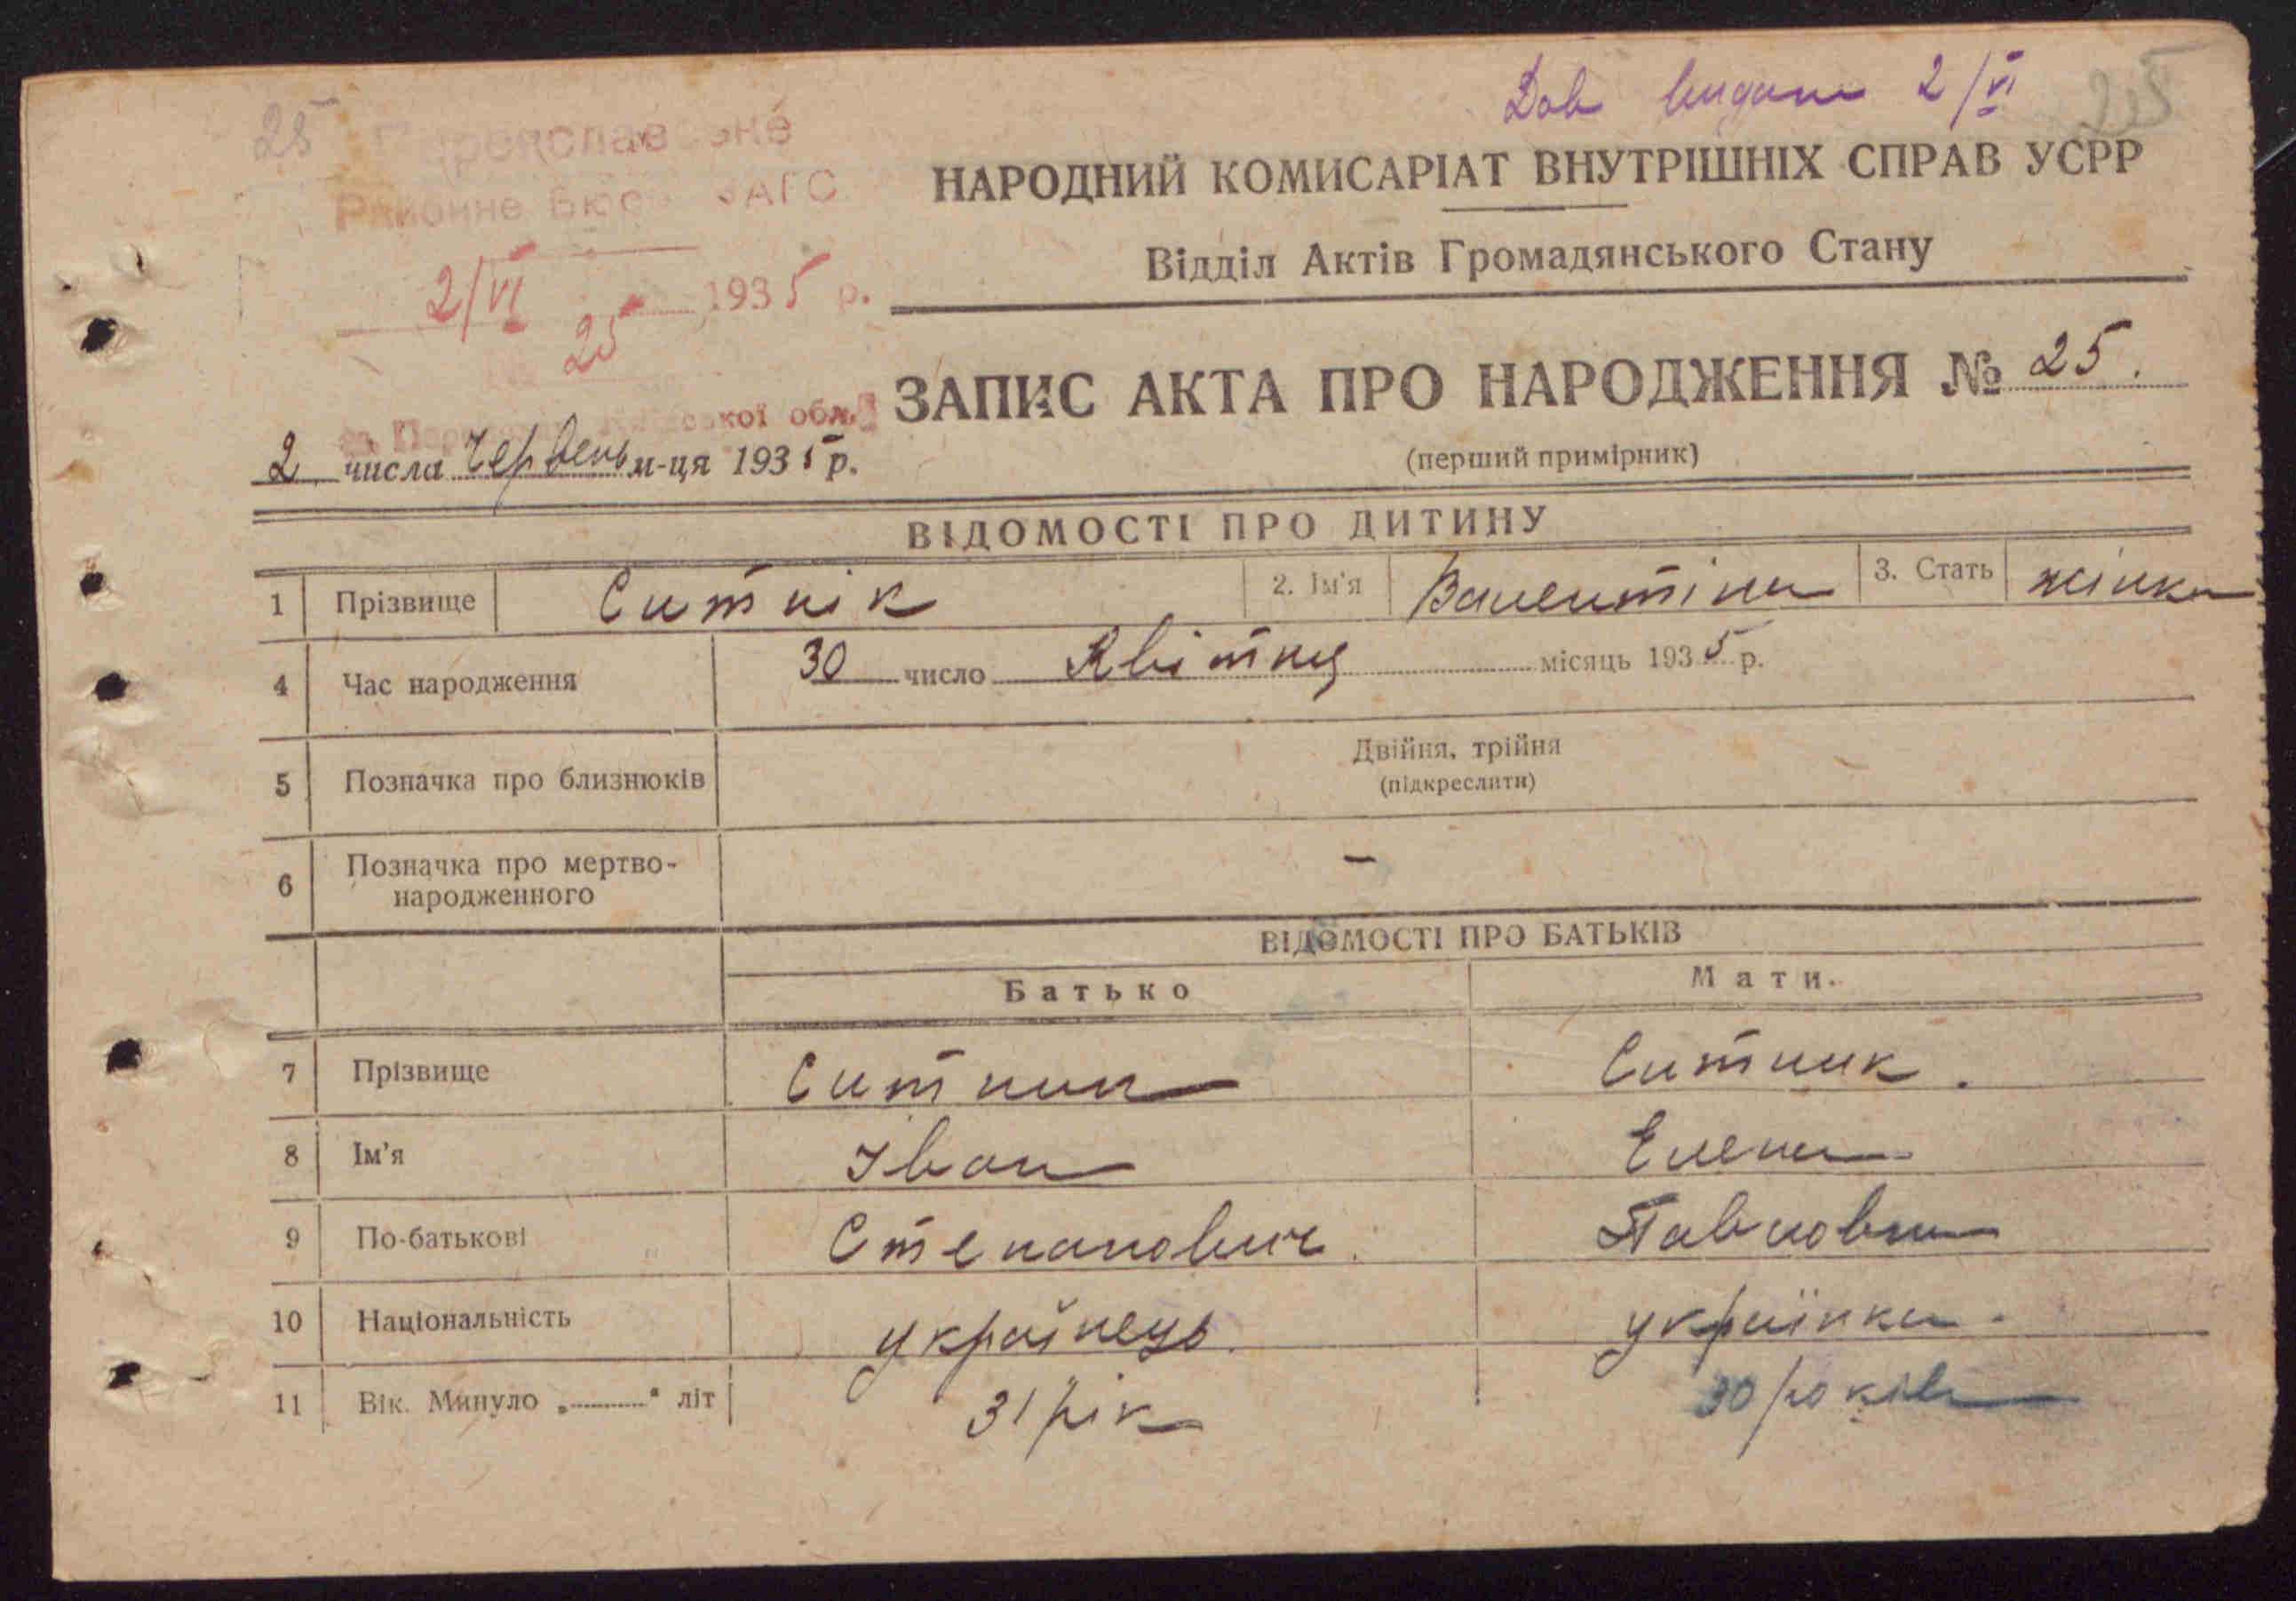 Дов видана 2/VI
25
25
Переяславське
Районне Бюро ЗАГС
2/VI 1935 р.
25
ської обл.
НАРОДНИЙ КОМИСАРІАТ ВНУТРІШНІХ СПРАВ УСРР
Відділ Актів Громадянського Стану
ЗАПИС АКТА ПРО НАРОДЖЕННЯ № 25.
(перший примірник)
2 числа Червень м-ця 1935 р.
ВІДОМОСТІ ПРО ДИТИНУ
1 Прізвище Ситнік 2. Ім'я Валентіна 3. Стать жінка
4 Час народження 30 число Квітня місяць 1935 р.
5 Позначка про близнюків Двійня, трійня
(підкреслити)
6 Позначка про мертво-
народженного –
ВІДОМОСТІ ПРО БАТЬКІВ
Батько Мати.
7 Прізвище Ситник Ситник.
8 Ім'я Іван Елена
9 По-батькові Степанович. Павловна
10 Національність українець. українка.
11 Вік. Минуло „ “ літ 31 рік 30 років